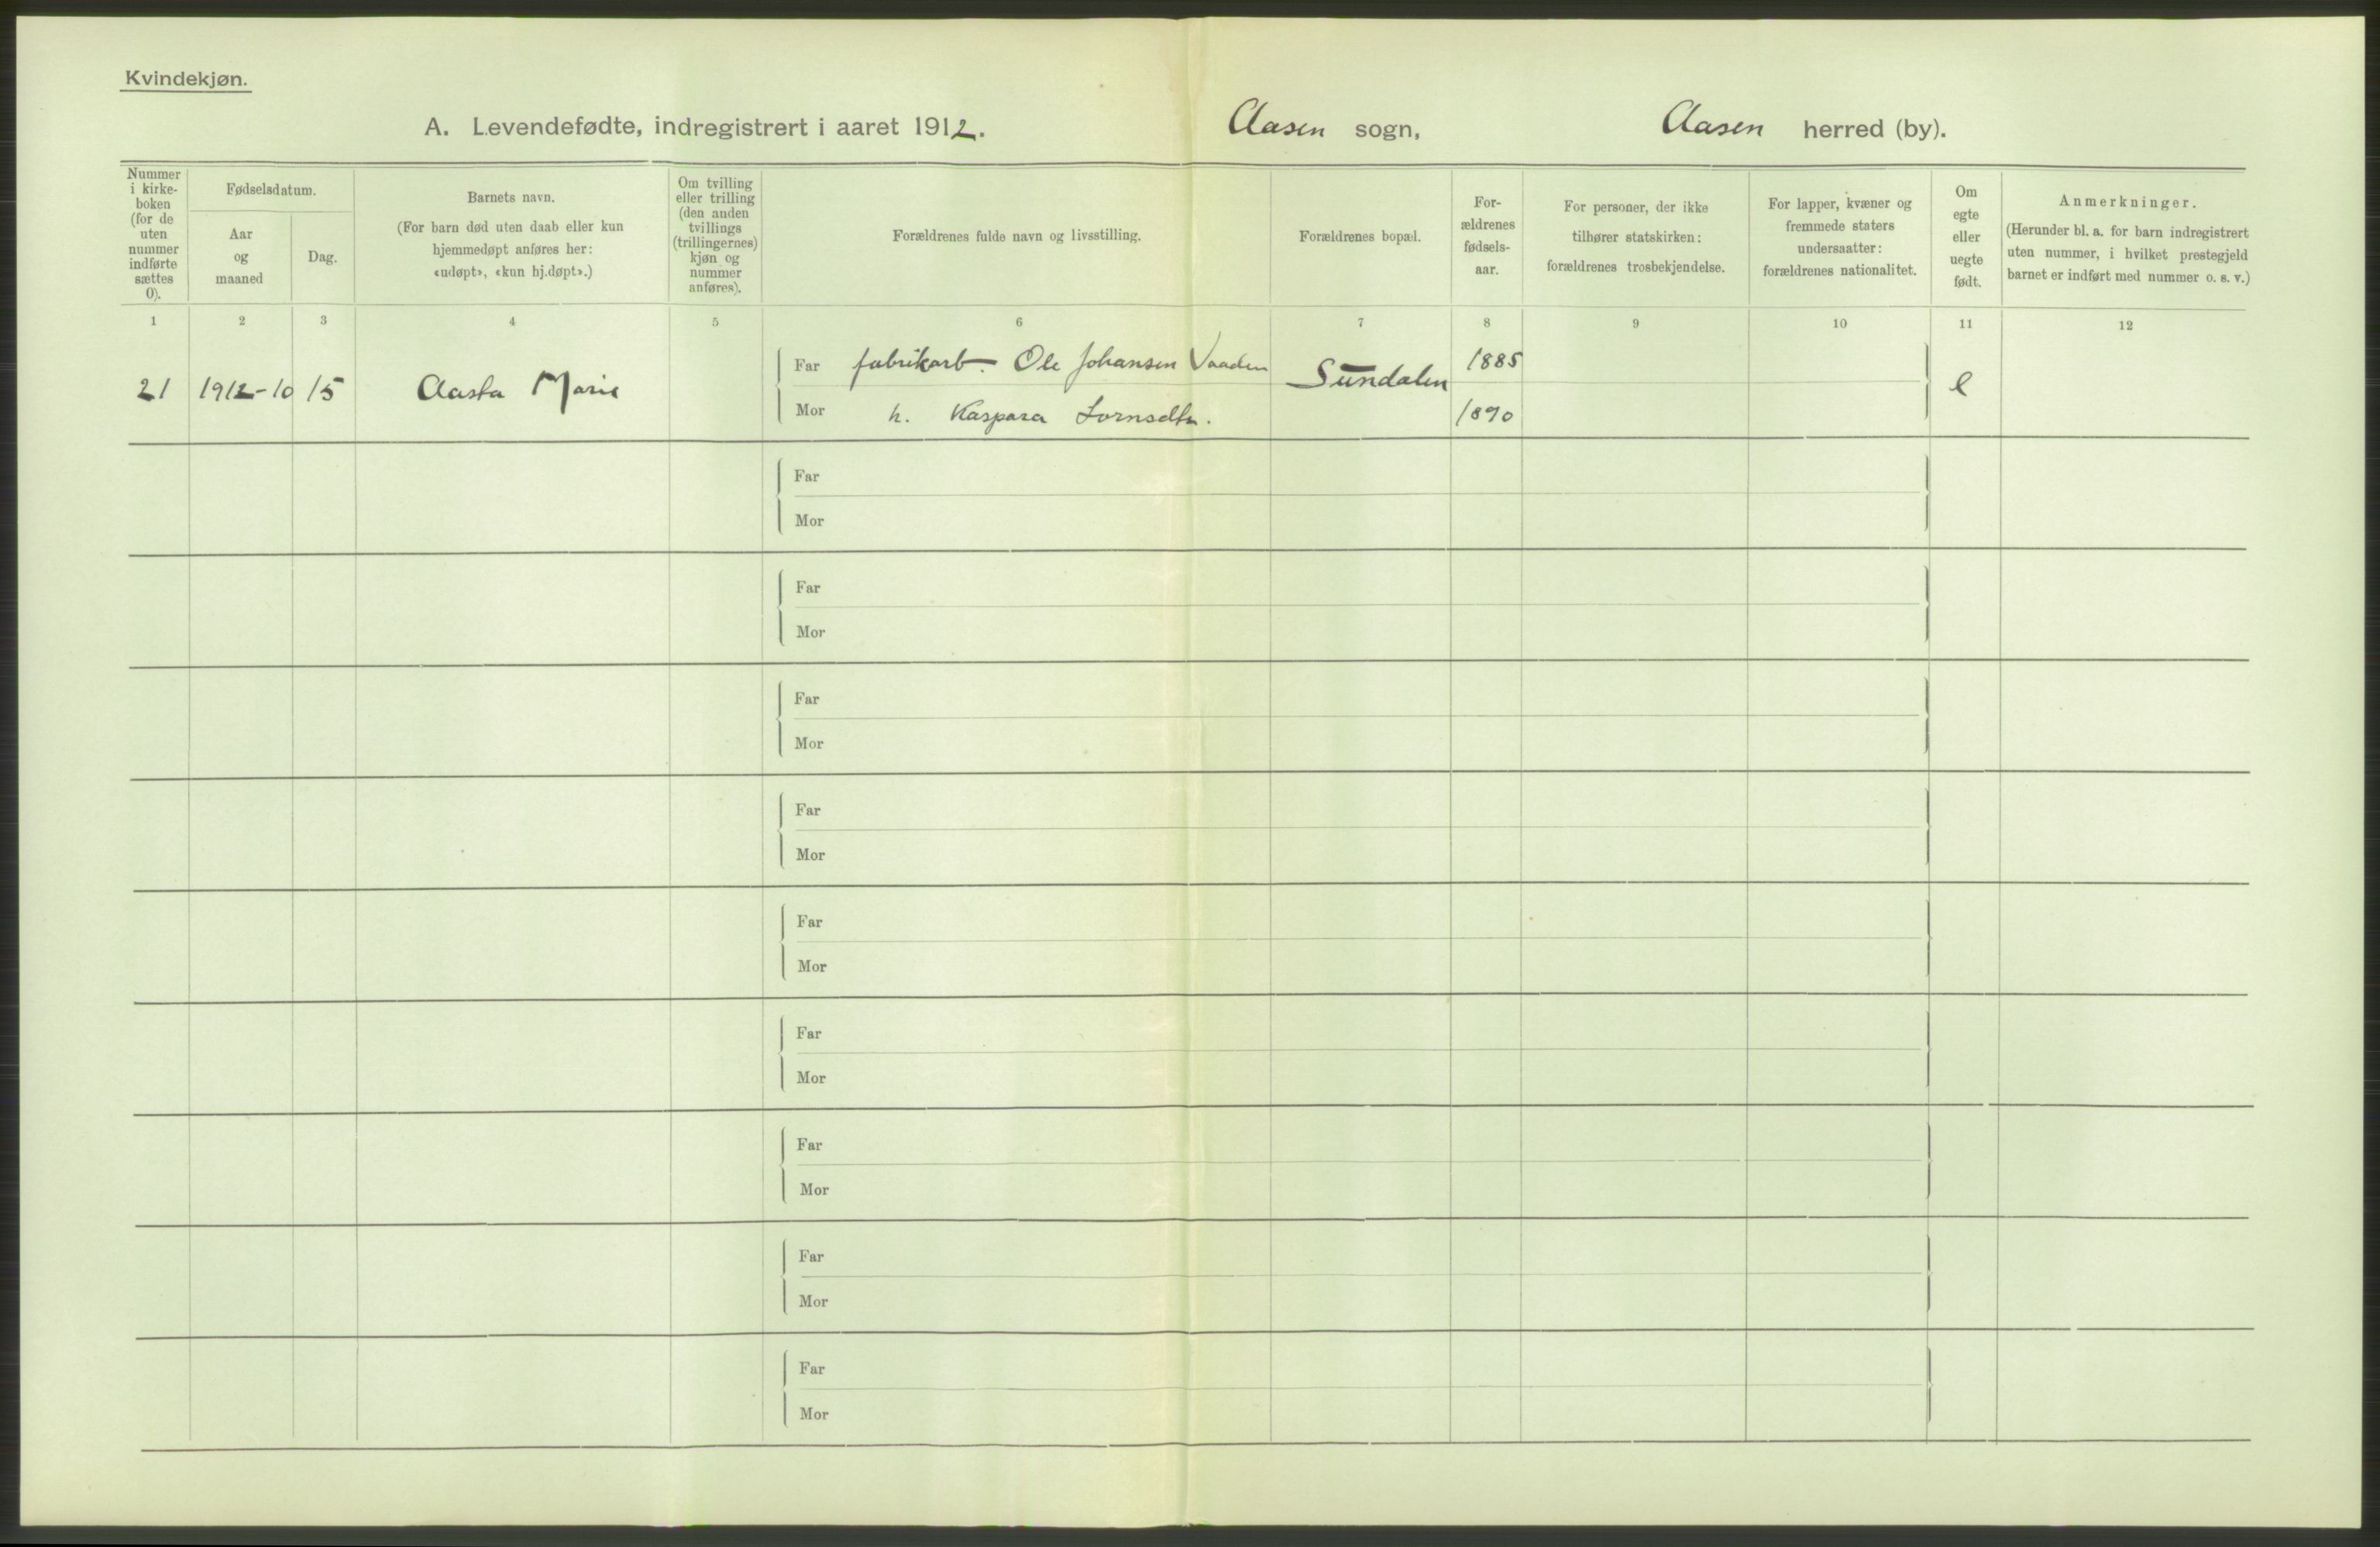 Kvindekjøn.
A. Levendefødte, indregistrert i aaret 1912. Aasen sogn, Aasen herred (by).
Nummer
i kirke-
boken
(for de
uten
nummer
indførte
sættes
0).
Fødselsdatum.
Aar
og
maaned
Dag.
Barnets navn.
(For barn død uten daab eller kun
hjemmedøpt anføres her:
«udøpt», «kun hj.døpt».)
Om tvilling
eller trilling
(den anden
tvillings
(trillingernes)
kjøn og
nummer
anføres).
Forældrenes fulde navn og livsstilling.
Forældrenes bopæl.
For-
ældrenes
fødsels-
aar.
For personer, der ikke
tilhører statskirken:
forældrenes trosbekjendelse.
For lapper, kvæner og
fremmede staters
undersaatter:
forældrenes nationalitet.
Om
egte
eller
uegte
født.
Anmerkninger.
(Herunder bl. a. for barn indregistrert
uten nummer, i hvilket prestegjeld
barnet er indført med nummer o. s. v.)
1 2 3 4 5 6 7 8 9 10 11 12
21 1912-10 15 Aasta Marie
Far fabrikarb. Ole Johansen Vaaden
Sundalen
1885
e
Mor h. Kaspara
1890
Far
Mor
Far
Mor
Far
Mor
Far
Mor
Far
Mor
Far
Mor
Far
Mor
Far
Mor
Far
Mor